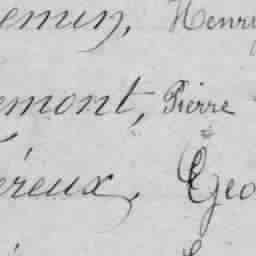 emin, Henri
emont, Pierre
éreux, Geo